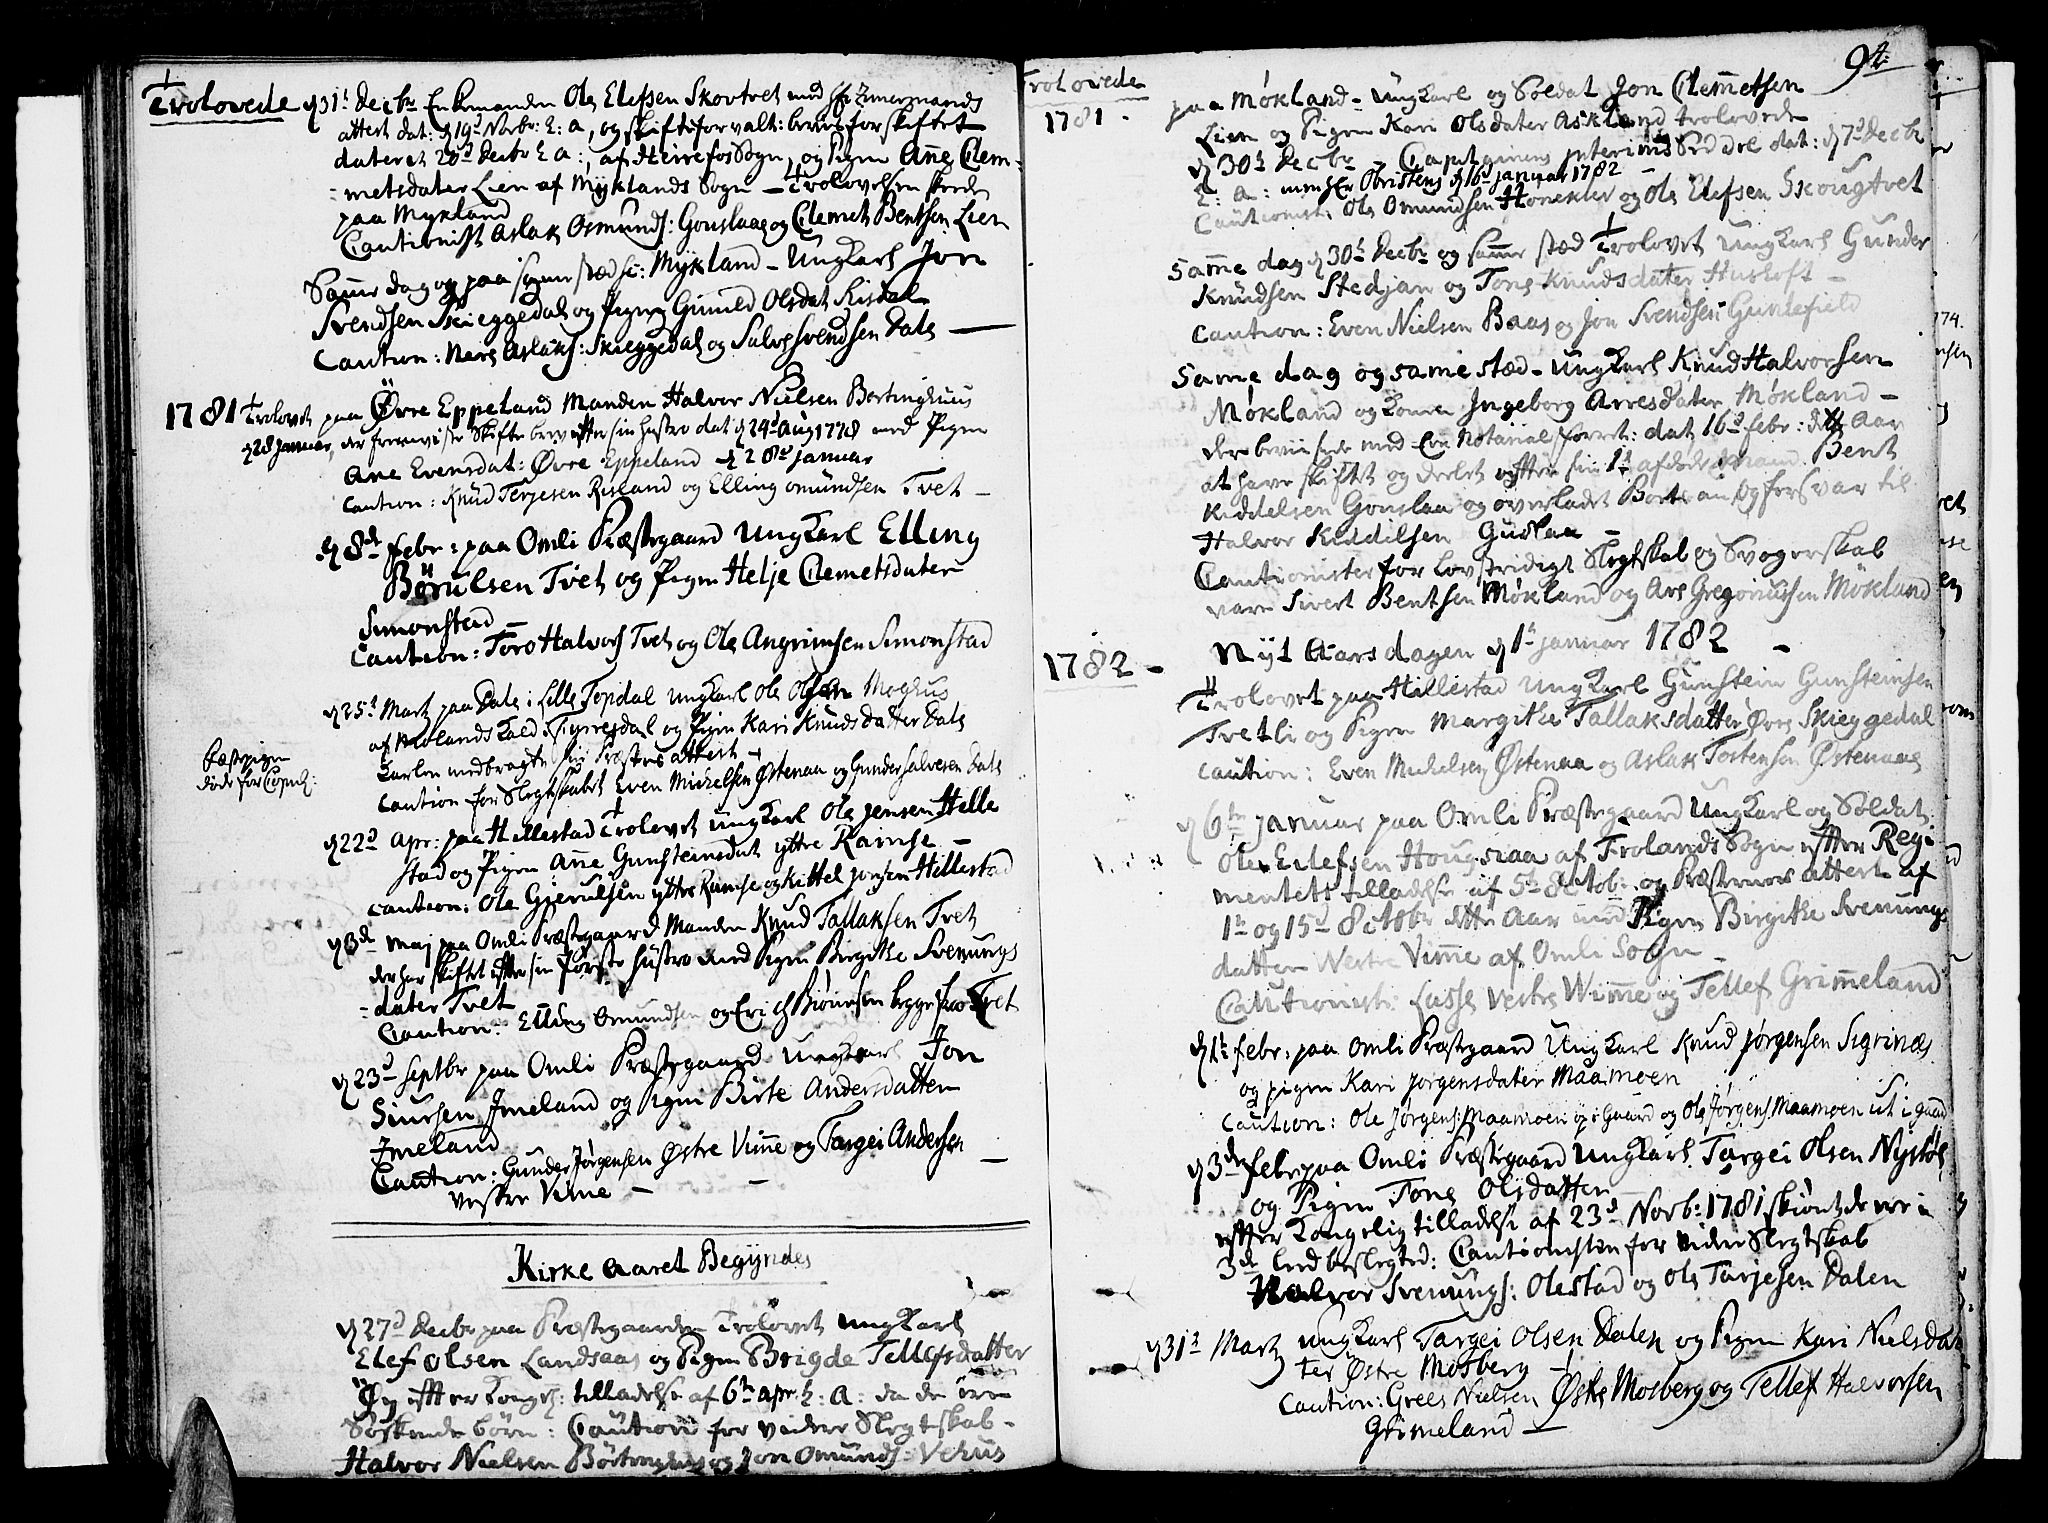 Trolovede
d 31t Decbr Enkemanden Ole Elefsen Skovtvet med Zimermands
attest dat: d 19d Novbr: h: a, og skifteforvalt: beviis for skiftet
dateret 20d Decbr h a:, af Heirefos Sogn, og Pigen Anne Clem-
metsdater Lien af Myklands Sogn - Trolovelsen skeede
paa Mykland
Cautionist Aslak Osmunds: Gouslaae og Clemet Bentsen Lien
Samme dag og paa samme sted: Mykland - Ung Karl Jon
Svendsen Skieggedal og Pigen Gunild Olsdat Risdal
Caution: Nere Aslaks: Skieggedal og Salve Svendsen Dale
1781 Trolovet paa Øvre Eppeland Manden Halvor Nielsen Bortinghuus
d 28 Januar, der foreviiste Skifte brev efter sin hustro dat d 24d Aug 1778 med Pigen
Ane Evensdat: Øvre Eppeland d 28d Januar
Caution: Knud Terjesen Risland og Elling Omundsen Tvet -
d 8de Febr: paa Omli Præstegaard Ung Karl Elling
Børulsen Tvet og Pigen Helje Clemetsdater
Simonstad -
Caution: Toro Halvors Tvet og Ole Angrimsen Simonstad
d 25t Martz paa Dale i Lille Topdal Ung Karl Ole Olsen Moghus
af Molands Kald i Tyrresdal og Pigen Kari Knudsdatter Dale
Karlen medbragte sin Præstes attest -
Caution for Slegtskabet Even Mickelsen Østenaa og Gunder Salvesen Dale
Fæstepigen
døde for Copul:
d 22d Apr: paa Hillestad Trolovet Ung Karl Ole Jensen Helle
stad og Pigen Anne Gunsteinsdat yttre Ramse -
Caution: Ole Gjerulsen yttre Ramse og Kittel Jensen Hillestad
d 3de Maj paa Omli Præstegaard Manden Knud Tallaksen Tvet
der har skiftet efter sin første hustro med Pigen Birgithe Svenungs
dater Tvet
Caution: Elling Omundsen og Erich Biørnsen begge fra Tvet
d 23d Septbr paa Omli Præstegaard Ung Karl Jon
Siursen Imeland og Pigen Birte Andersdatter
Imeland
Caution: Gunder Jørgensen Østre Vimme og Targei Andersen
vestre Vime -
Kirke aaret Begyndes
d 27d Decbr paa Præstegaarden Trolovet Ung Karl
Elef Olsen Landsaas og Pigen Brigde Tellefsdatter
Øy efter Kongel: tilladelse af 6te Apr h: a: da de ere
Søskende børn: Caution for videre Slegtskab -
Halvor Nielsen Børtinghus og Jon Omunds: Vehus
94.
Trolovede
1781 -
paa Møkland - Ung Karl og Soldat Jon Clemmetsen
Lien og Pigen Kari Olsdater Askland trolovede
d 30t Decbr - Capitainens Interims Seddel dat: d 7d Decbr
h: a: men Obristens d 16d Januar 1782 -
Cautionist: Ole Omundsen Honekler og Ole Elefsen Skougtvet
Samme dag d 30t Decbr og samme stæd Trolovet Ung Karl Gunder
Knudsen Stedjan og Tone Knudsdater Husloft -
Caution: Even Nielsen Baas og Jon Svendsen Gunlefield
Samme dag og samme stæd - Ung Karl Knud Halvorsen
Møkland og Konen Ingeborg Arresdater Møkland -
der beviisede med en Notarial forret: dat 16d Febr: dette Aar
at have skiftet og deelet efter sin 1t afdøde Mand Bent
Kiddelsen Gouslaa og overladet Børte an og forsvar til
Halvor Kiddilsen Guslaa -
Cautionister for lovstridigt Slegtskab og Svogerskab
vare Sivert Bentsen Møkland og Are Gregoriussen Møkland
1782 - Nyt Aars dagen d 1t Januar 1782 -
Trolovet paa Hillestad Ung Karl Gunstein Gunsteinsen
Tvetli og Pigen Margithe Tallaksdatter Øvre Skieggedal
Caution: Even Mickelsen Østenaa og Aslak Tostensen Østenaae
d 6te Januar paa Omli Præstegaard Ung Karl og Soldat
Ole Elefsen Hougsiaa af Frolands Sogn efter Regi
mentets tilladelse af 5t Octob: og Præsternes attest af
1t og 15d Octobr dette Aar med Pigen Birgithe Svenungs
datter Vestre Vimme af Omli Sogn -
Cautionist: Lasse Vestre Wimme og Tellef Grimmeland
d 1t Febr: paa Omli Præstegaard Ung Karl Knud Jørgensen Sigrinæs
og Pigen Kari Jørgensdater Maamoen
Caution: Ole Jørgens: Maamoen op i Gaard og Ole Jørgens Maamoen ut i Gaard
d 3de Febr paa Omli Præstegaard Ung Karl Targei Olsen Nystøl
og Pigen Tone Olsdatter
efter Kongelig tilladelse af 23d Novb: 1781 skiønt de ere i
3de led beslegted: Cautionister for videre Slegtskab
Halvor Svenungs: Olestad og Ole Tarjesen Dalen
d 31t Martz Ung Karl Targei Olsen Dalen og Pigen Kari Nielsdat
ter Østre Mosberg -
Caution: Grees Nielsen Østre Mosberg og Tellef Halvorsen
Grimeland -